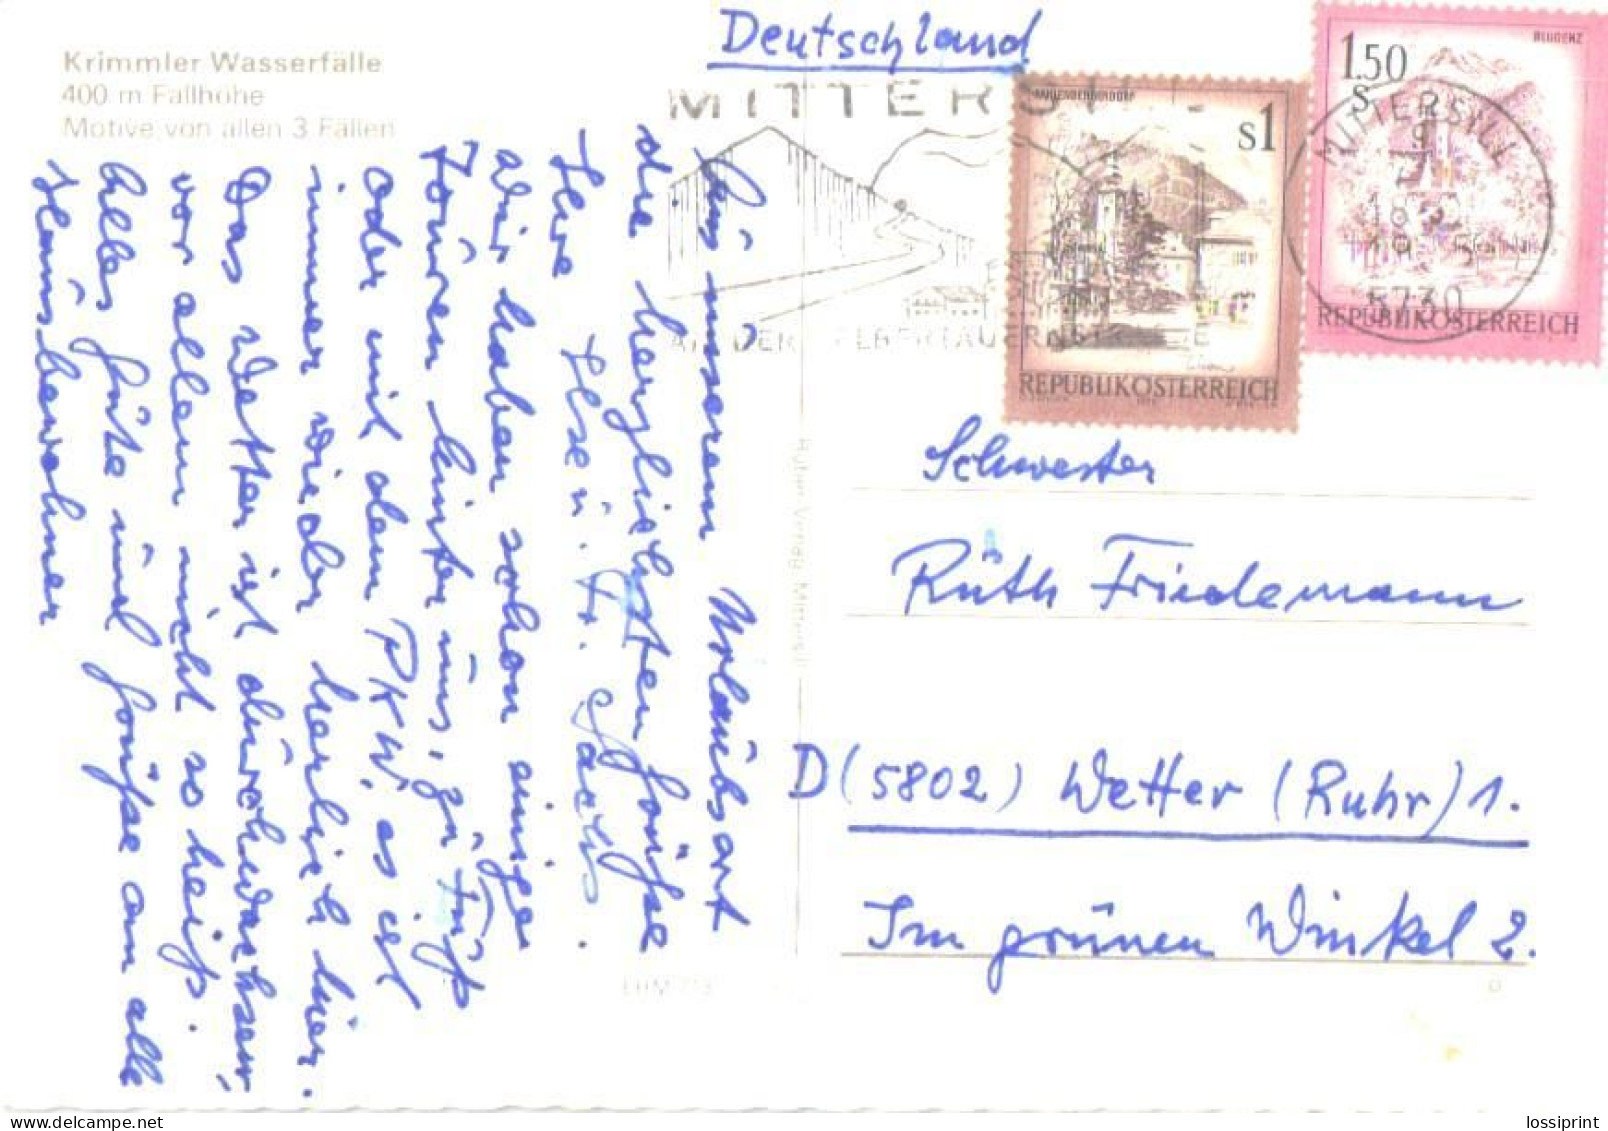 Krimmler Wasserfälle
400 m Fallhöhe
Motive von allen 3 Fällen
Deutschland
MITTERSILL
AN DER FELBERTAUERNSTRASSE
S1
REPUBLIK ÖSTERREICH
BLUDENZ
1.50
S
REPUBLIK ÖSTERREICH
MITTERSILL
5730
Aus unserem Urlaubsort
die herzlichsten Grüße
Ihre Ilse u. Fr. Sachs.
Wir haben schon einige
Touren hinter uns, zu Fuß
oder mit dem PKW, es ist
immer wieder herlich hier.
Das Wetter ist durchwachsen,
vor allem nicht so heiß.
Alles Gute und Grüße an alle
Hausbewohner
Schwester
Ruth Friedemann
D (5802) Wetter (Ruhr) 1.
Im grünen Winkel 2.
lossiprint